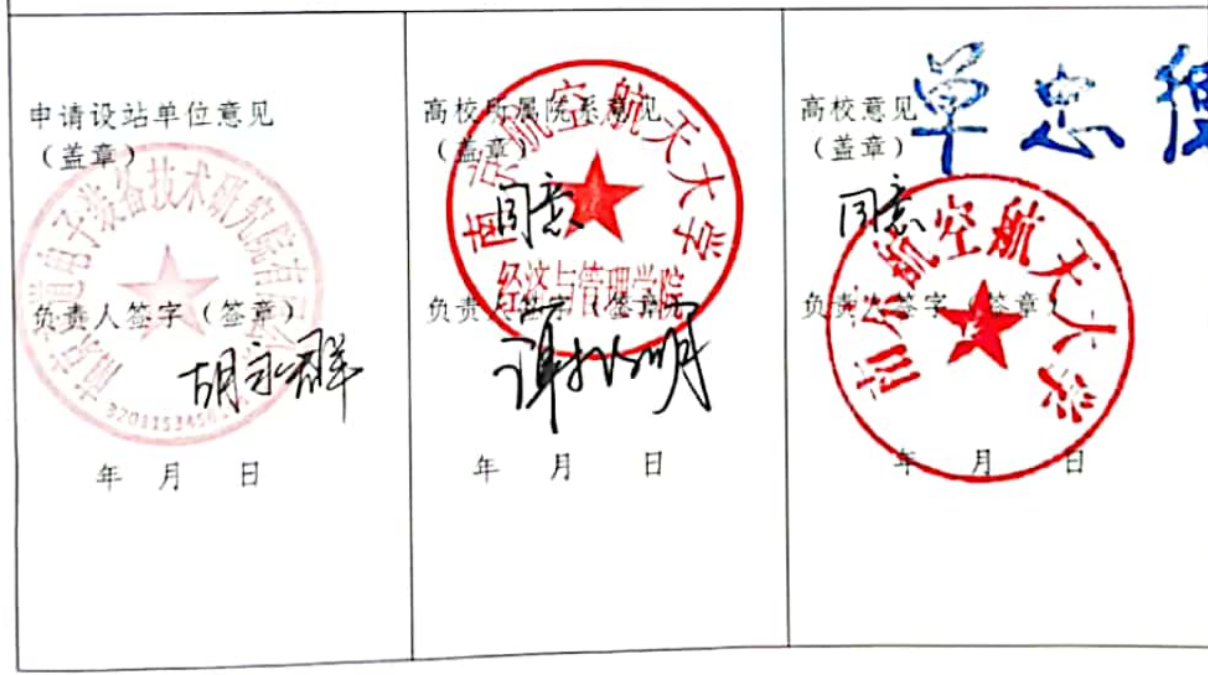 申请设站单位意见
（盖章）
电子装备技术研究院有
负责人签字（签章）
胡永群
年 月 日
高校所属院系意见
（盖章）
南京航空航天大学
同意
经济与管理学院
负责人签字（签章）
年 月 日
高校意见
（盖章）
单忠
同意
南京航空航天大学
负责人签字（签章）
年 月 日